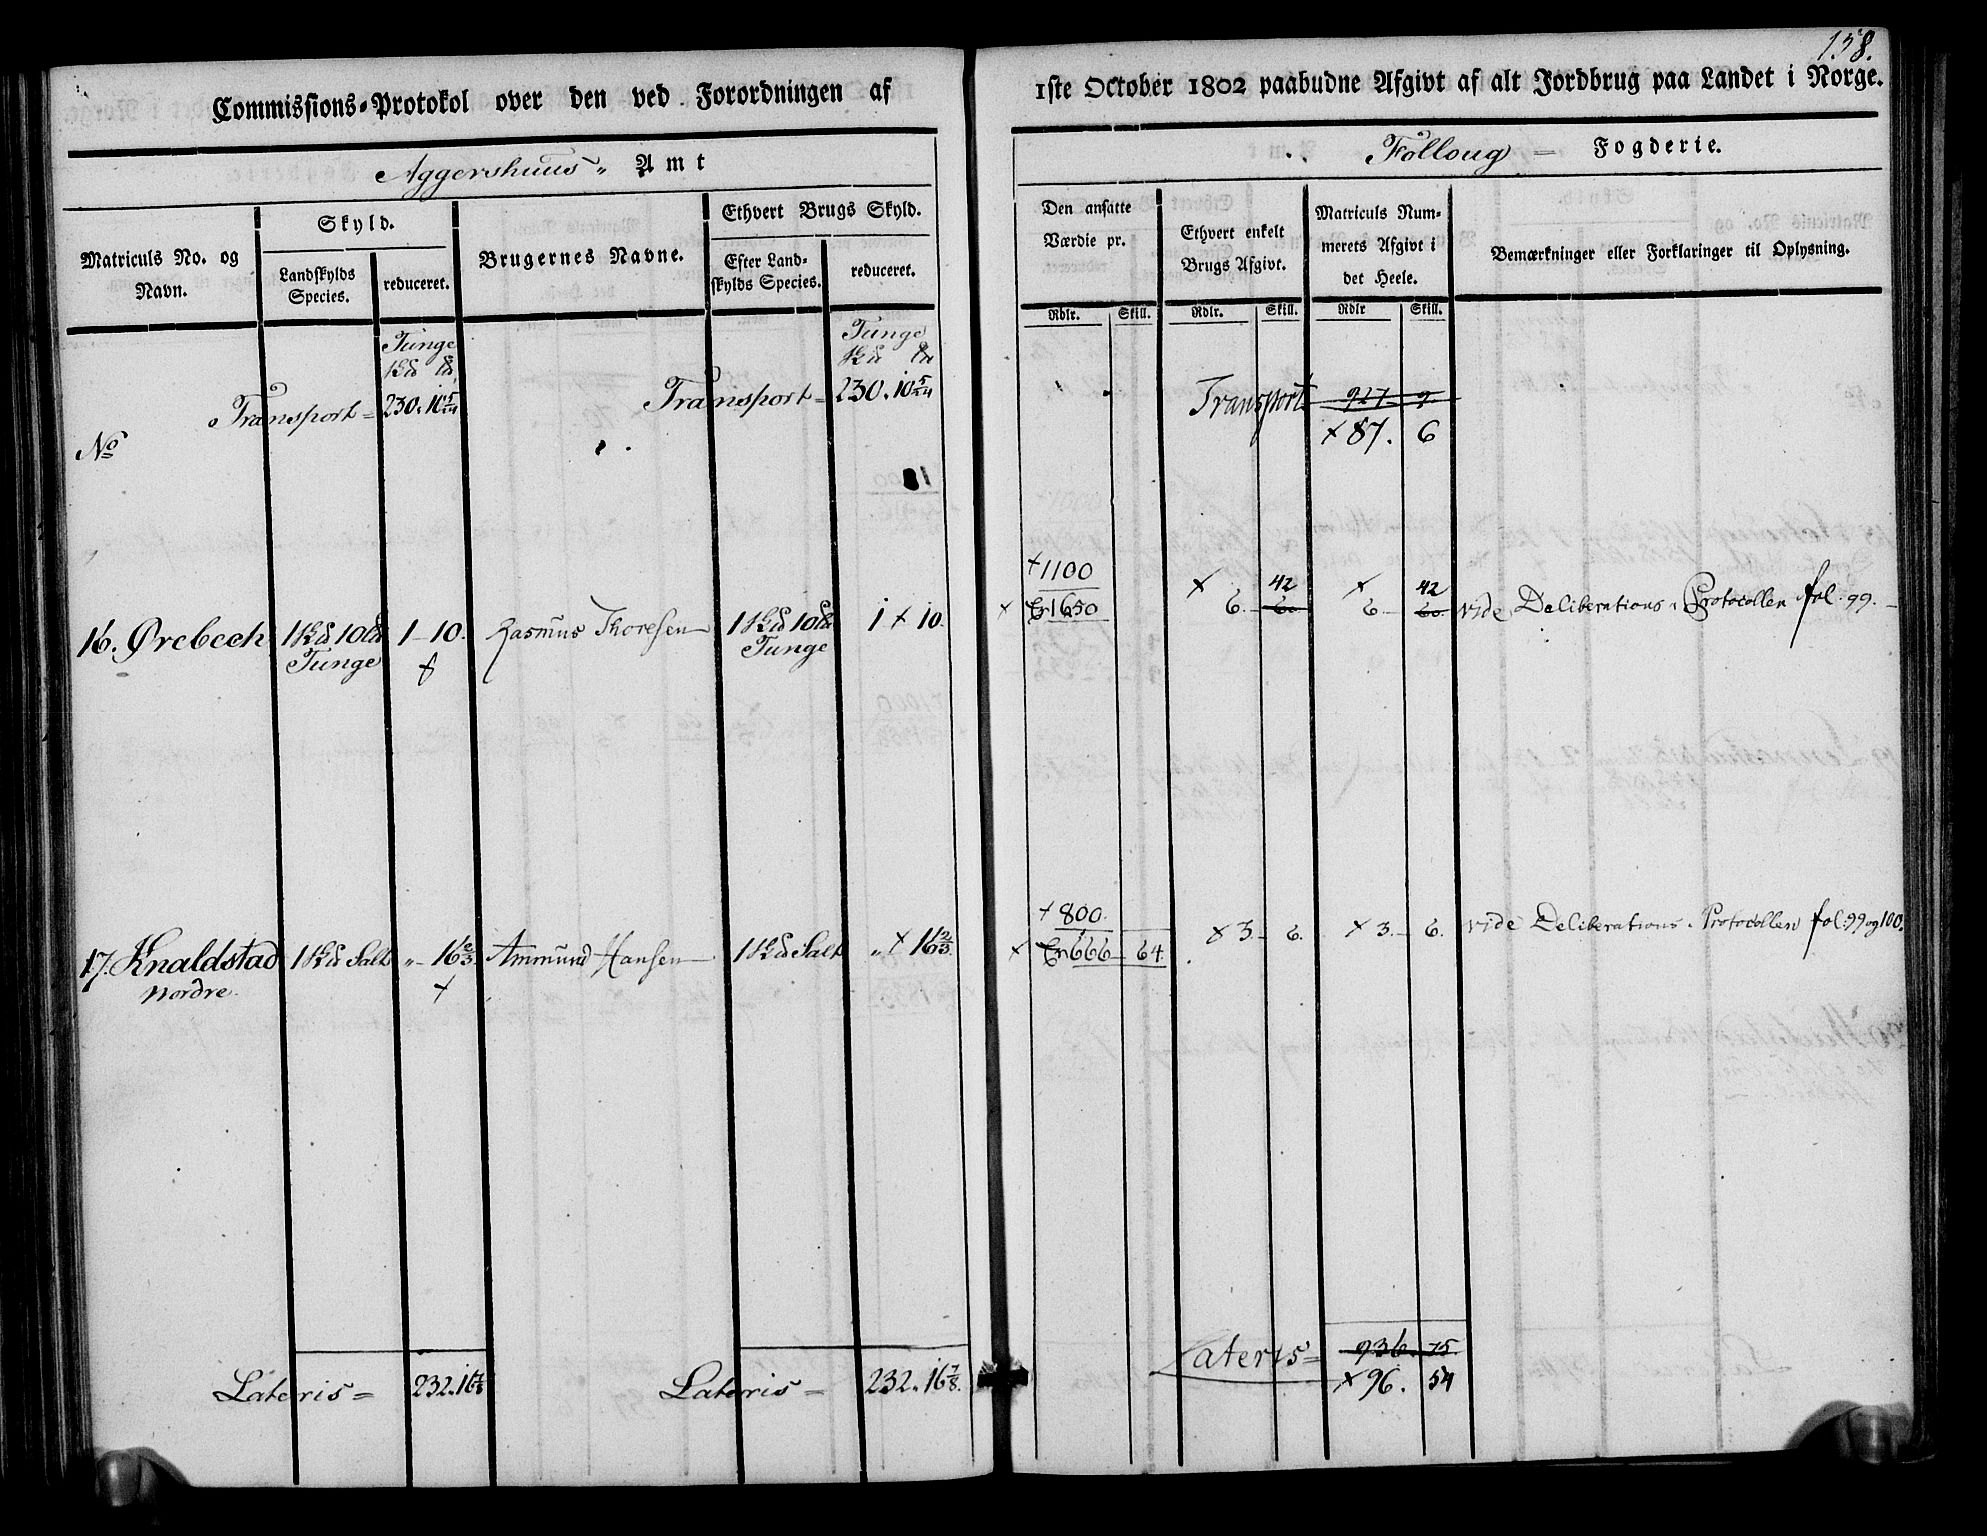 138.
Commissions-Protokol over den ved Forordningen af 1ste October 1802 paabudne Afgivt af alt Jordbrug paa Landet i Norge.
Aggershuus Amt
Folloug Fogderie.
Matriculs No. og Navn.
Skyld.
Landskylds Species.
reduceret.
Brugernes Navne.
Ethvert Brugs Skyld.
Efter Landskylds Species.
reduceret.
Den ansatte Værdie pr.
Ethvert enkelt Brugs Afgivt.
Matriculs Nummerets Afgivt i det Heele.
Bemærkninger eller Forklaringer til Oplysning.
Rdlr. Skill. Rdlr. Skill. Rdlr Skill.
Tunge Tunge
Transport = 230. 10 5/24 Transport = 230. 10 5/24 Transport 927 9
× 87. 6
No
+ 1100 42 42
16. Ørebech 1 10 Tunge 1 - 10. Rasmus Thoresen 1 10 Tunge 1 + 10. × Er 1650 × 6. 60 × 6. 60 vide Deliberations Protocollen fol. 99.
+ 800.
17. Knaldstad Nordre 1 Salt „ - 16 2/3 Ammund Hansen 1 Salt „ + 16 2/3. × Er 666 - 64. × 3 - 6. × 3. - 6. vide Deliberations Protocollen fol. 99 og 100.
Lateris = 232. 16 7/8 Lateris = 232. 16 7/8. Lateris = 936. 75.
× 96. 54